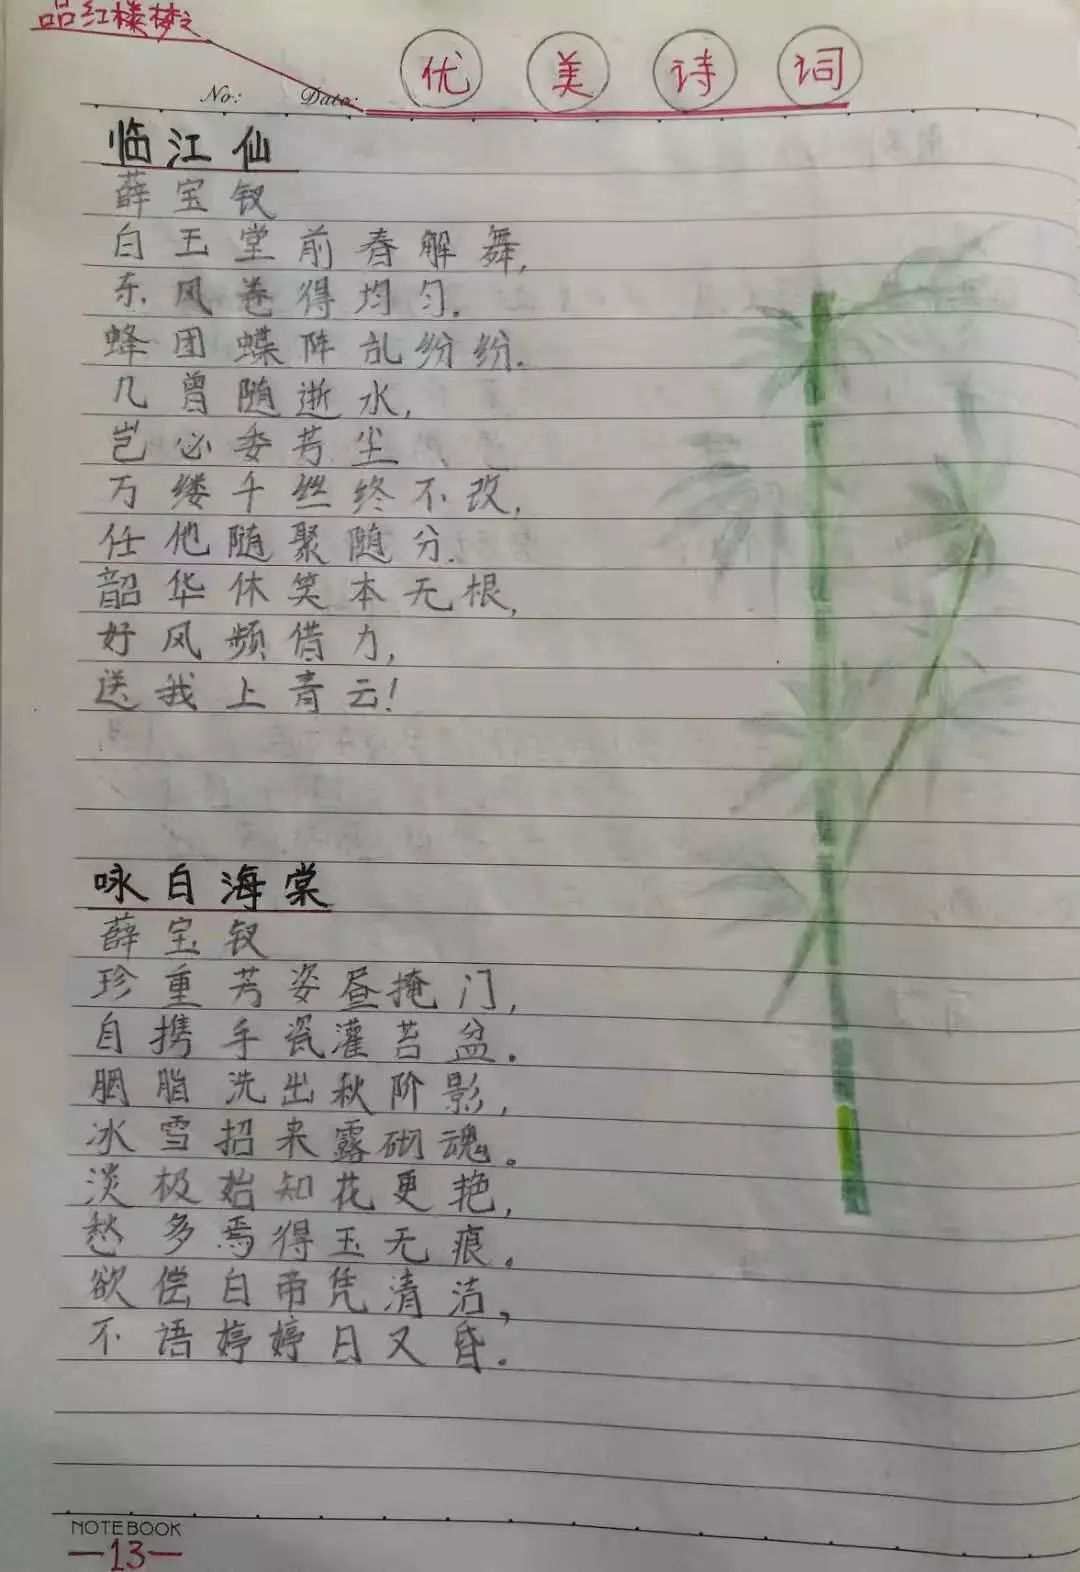 品红楼梦之
优美诗词
No: Date:
临江仙
薛宝钗
白玉堂前春解舞,
东风卷得均匀.
蜂团蝶阵乱纷纷.
几曾随逝水,
岂必委芳尘
万缕千丝终不改,
任他随聚随分.
韶华休笑本无根,
好风频借力,
送我上青云!
咏白海棠
薛宝钗
珍重芳姿昼掩门,
自携手瓷灌苔盆.
胭脂洗出秋阶影,
冰雪招来露砌魂。
淡极始知花更艳,
愁多焉得玉无痕.
欲偿白帝凭清洁,
不语婷婷日又昏.
NOTEBOOK
—13—